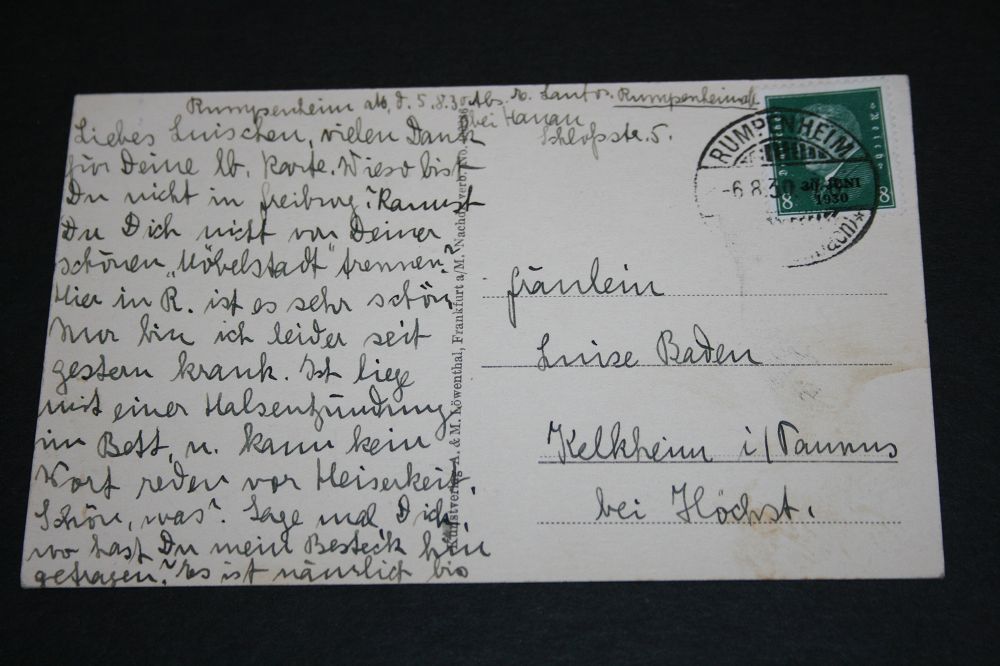 Rumpenheim a/M, d. 5.8.30 Abs. Rumpenheim a/M
bei Hanau
Schloßstr. 5.
Liebes Luischen, vielen Dank
für Deine lb. Karte. Wieso bist
Du nicht in Freiburg? Kannst
Du Dich nicht von Deiner
schönen „Möbelstadt" trennen?
Hier in R. ist es sehr schön
Nur bin ich leider seit
gestern krank. Ich liege
mit einer Halsentzündung
im Bett u. kann kein
Wort reden vor Heiserkeit.
Schön, was? Sage mal, Dich,
wo hast Du mein Besteck hin
getragen? Es ist nämlich bis
Kunstverlag A. & M. Löwenthal, Frankfurt a/M. Nachdr. verb. No.
RUMPENHEIM
-6.8.30
30. JUNI
1930
8 8
Fräulein
Luise Baden
Kelkheim i/Taunus
bei Höchst.